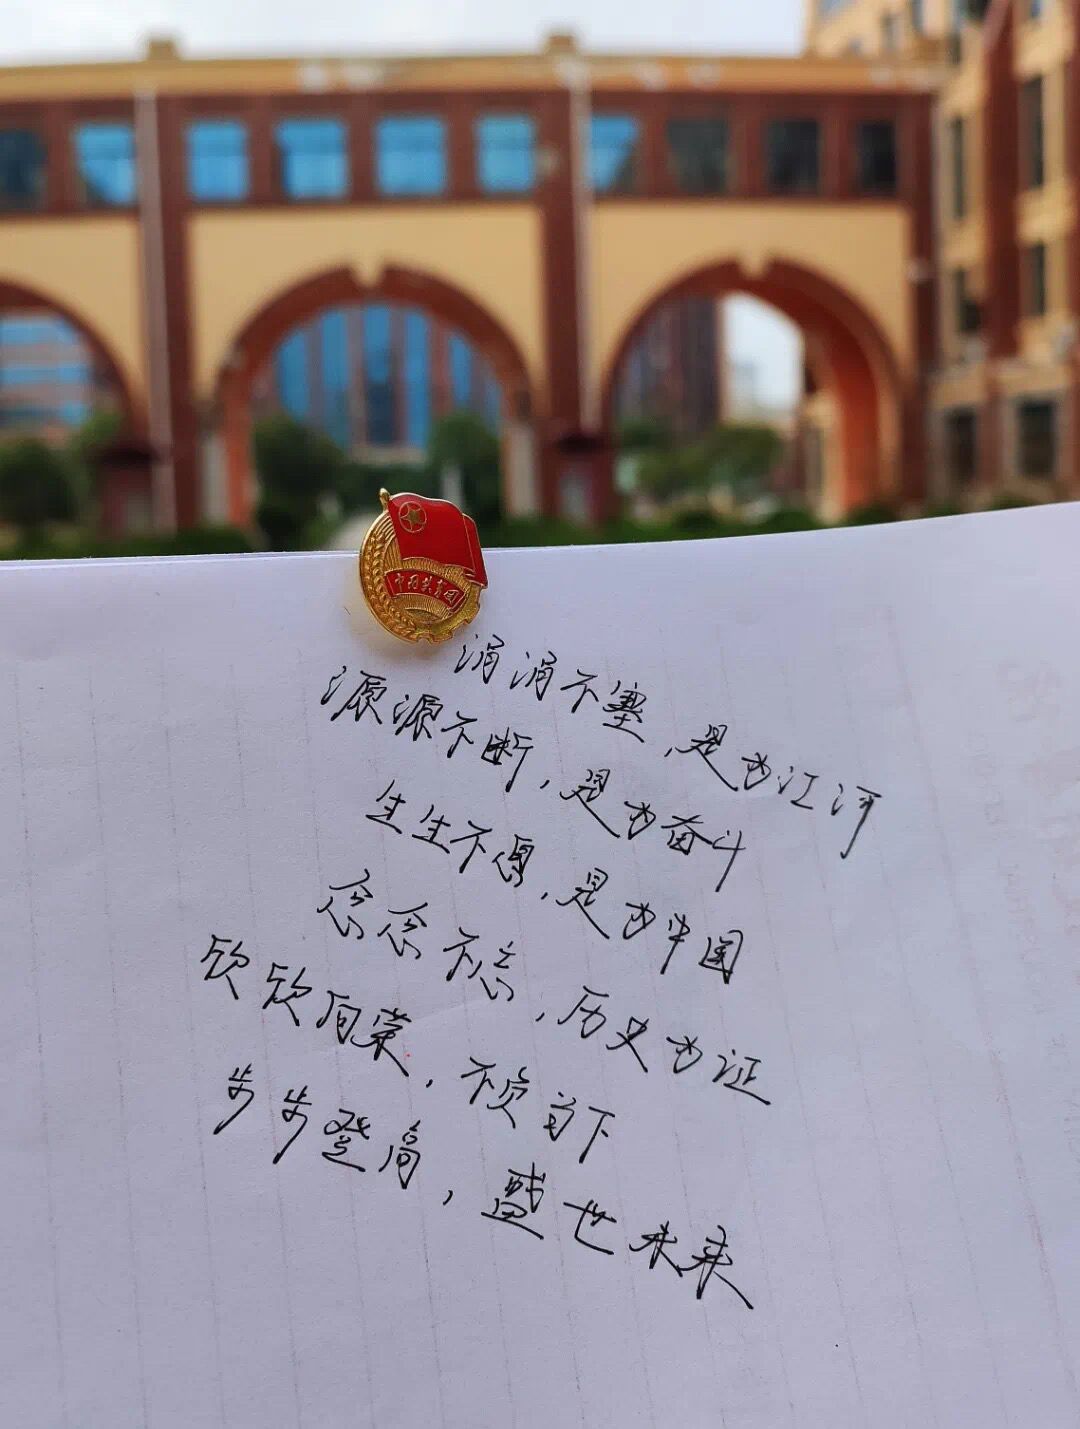 中国共青团
涓涓不塞，是为江河
源源不断，是为奋斗
生生不息，是为中国
念念不忘，历史为证
欣欣向荣，不负当下
步步登高，盛世未来